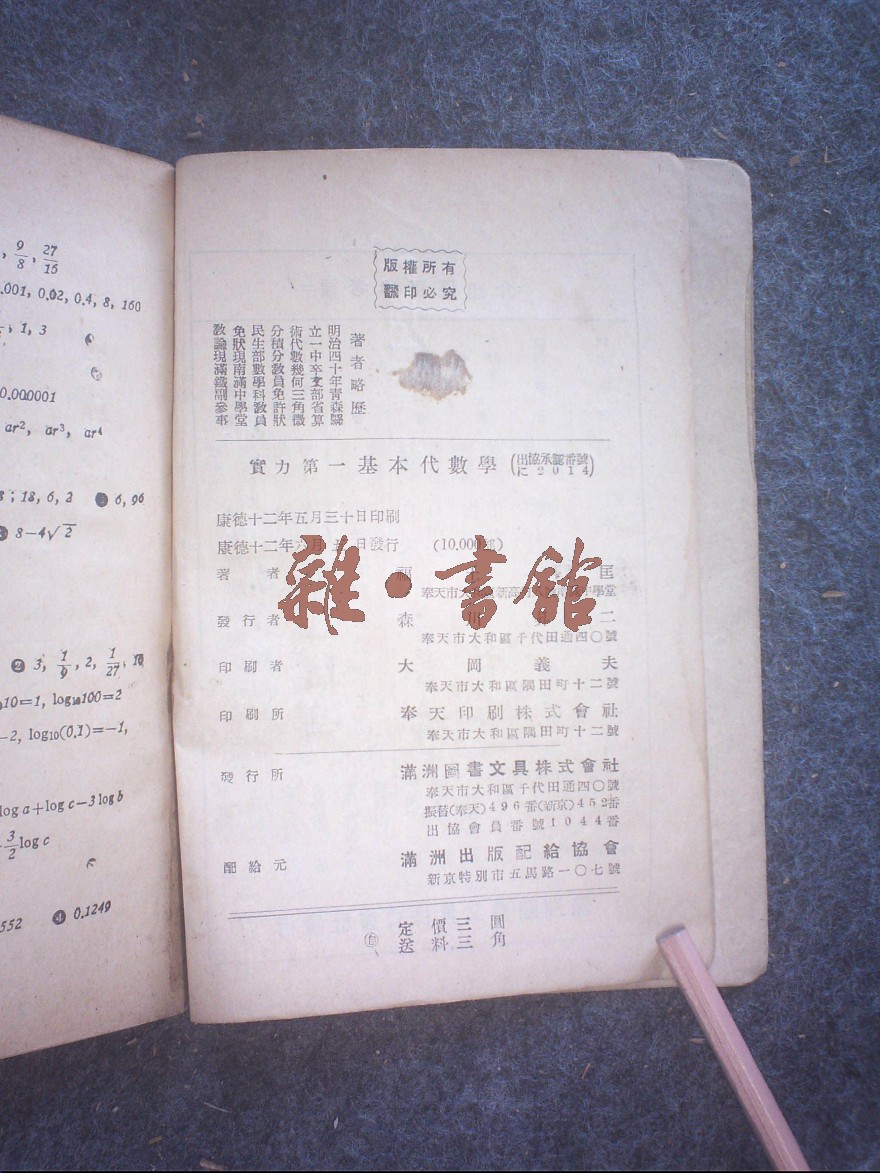 , 9/8, 27/16
.001, 0.02, 0.4, 8, 160
, 1, 3
0.000001
ar², ar³, ar⁴
; 18, 6, 2 ❸ 6, 96
8−4√2
❷ 3, 1/9, 2, 1/27, 10
10=1, log₁₀100=2
−2, log₁₀(0.1)=−1,
log a+log c−3log b
3/2 log c
552 ❹ 0.1249
版權所有
飜印必究
著者略歷
明治四十年靑森縣
立一中卒文部省算
術代數幾何三角微
分積分敎員免許狀
民生部數學科敎員
免狀現南滿中學堂
敎諭現滿鐵副參事
實力第一基本代數學 (出協承認番號に2014)
康德十二年五月三十日印刷
康德十二年六月五日發行 (10,000部)
著者 福 匡
奉天市大 中學堂
發行者 森 二
奉天市大和區千代田通四〇號
印刷者 大岡義夫
奉天市大和區隅田町十二號
印刷所 奉天印刷株式會社
奉天市大和區隅田町十二號
發行所 滿洲圖書文具株式會社
奉天市大和區千代田通四〇號
振替(奉天)496番(新京)452番
出協會員番號1044番
配給元 滿洲出版配給協會
新京特別市五馬路一〇七號
定價三圓
送料三角
雜·書館